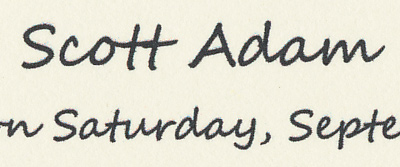 Scott Adam
on Saturday, Septe